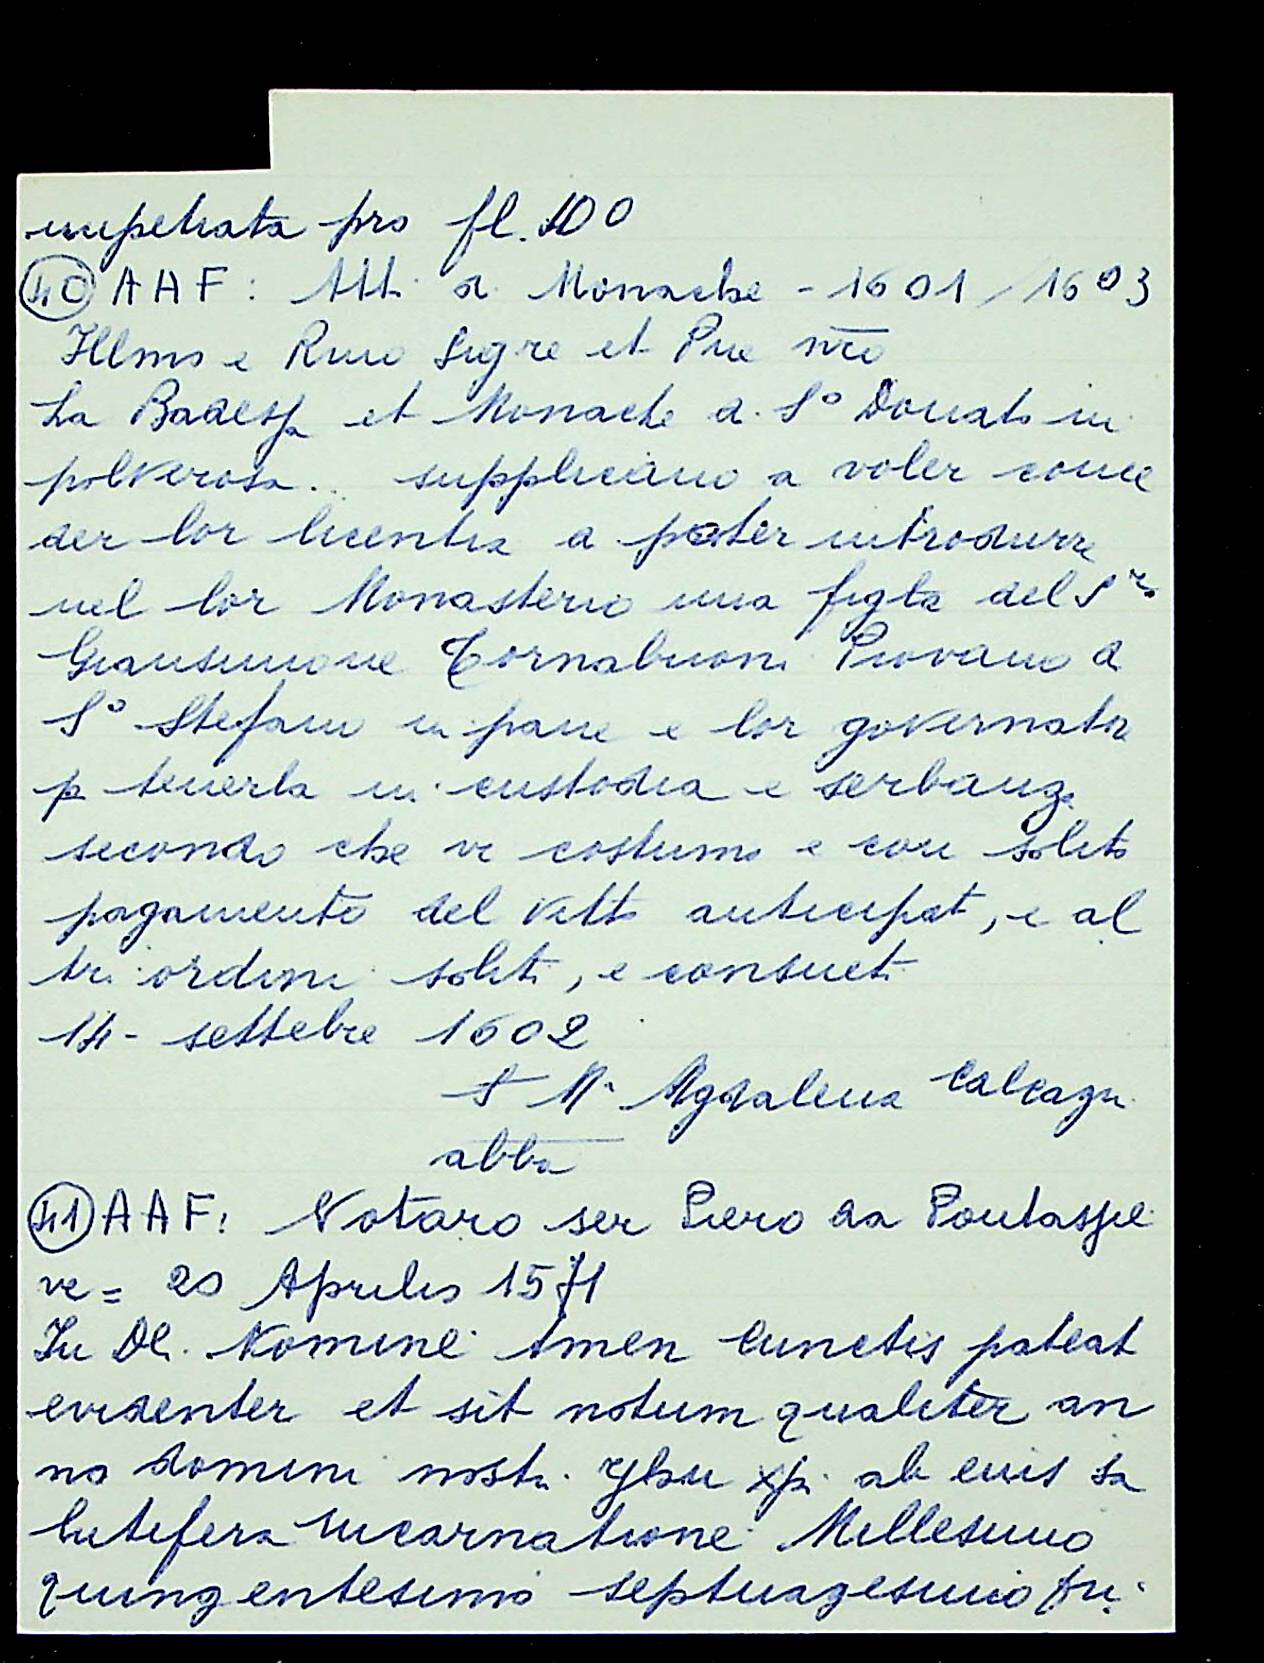 impetrata pro fl. 100
40 AAF: Atti di Monache - 1601/1603
Illmo e Rmo Sigre et Pne nro
La Badessa et Monache di Sº Donato in
polverosa... supplicano a voler conce
der lor licentia di poter introdurre
nel lor Monasterio una figla del Sre
Giansimone Tornabuoni Piovano di
Sº Stefano in pane e lor governator
p tenerla in custodia e serbanza
secondo che vi costuma e con solito
pagamento del vitto anticipat, e al
tri ordini soliti, e consueti
14 - settebre 1602
S Mª Magdalena Calcagni
abba
41 AAF: Notaro ser Piero da Pontassie
ve = 20 Aprilis 1571
In Dei Nomine Amen Cunctis pateat
evidenter et sit notum qualiter an
no domini nostri yhu xpi ab euis sa
lutifera incarnatione Millesimo
quingentesimo septuagesimo